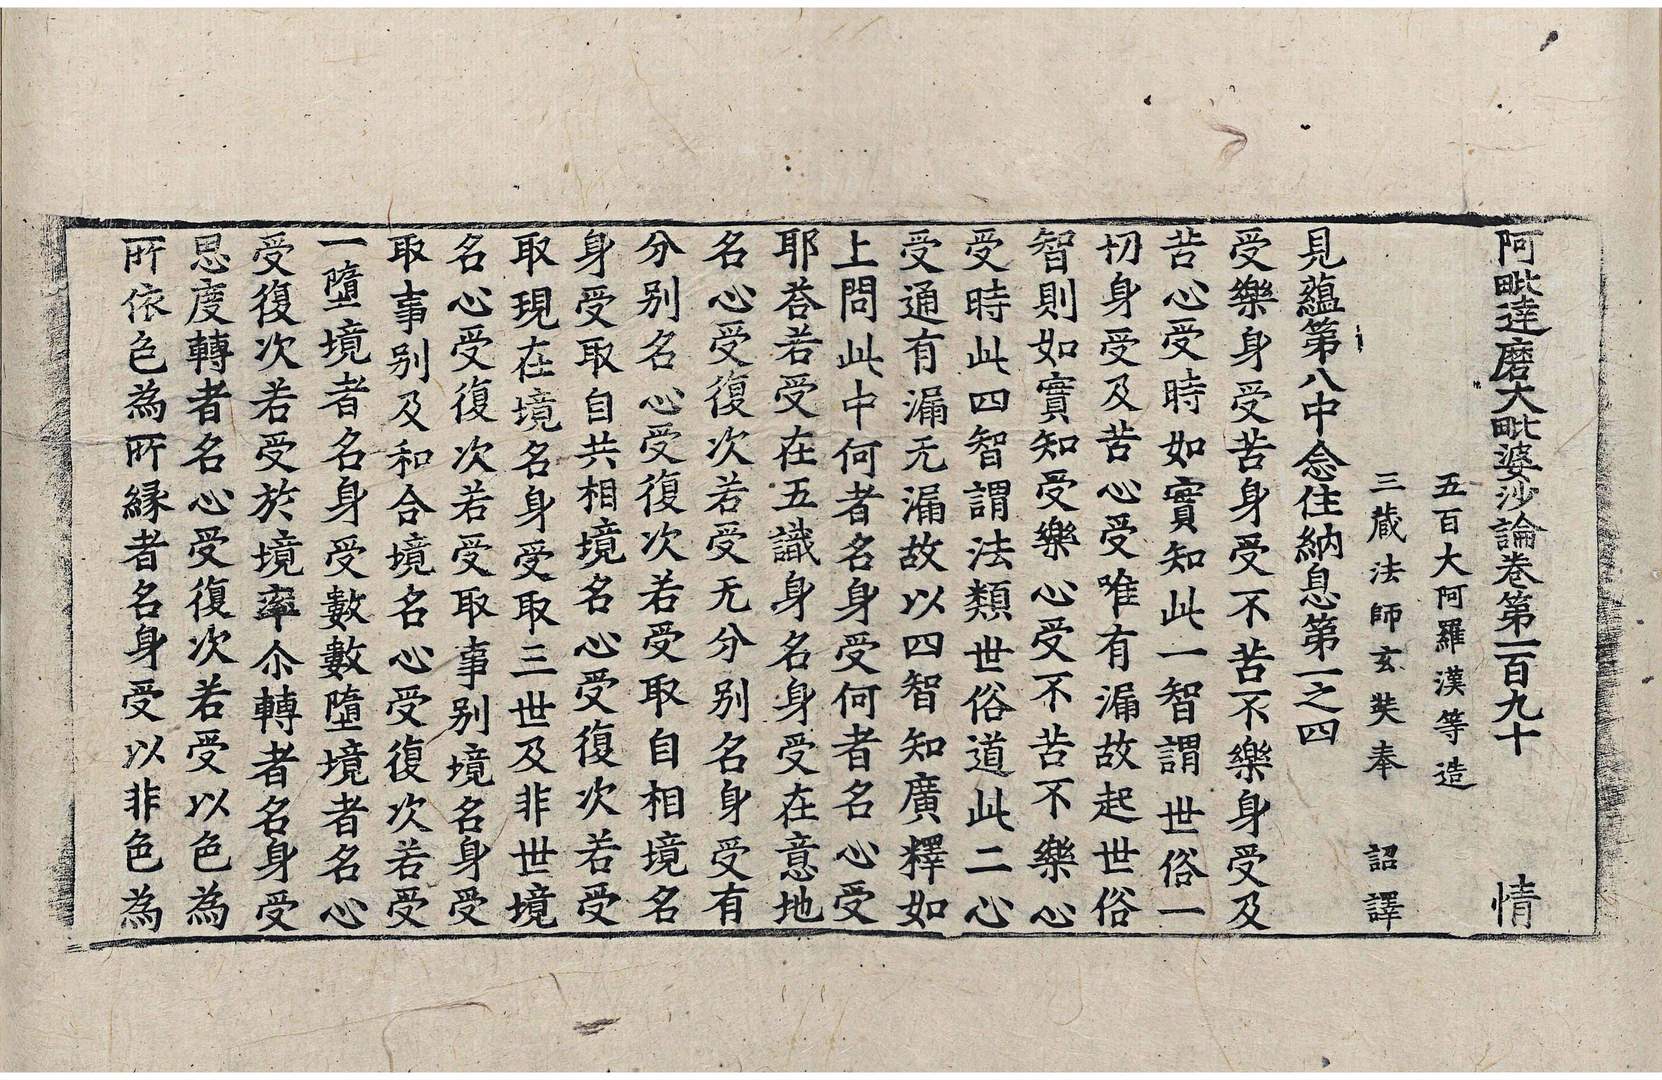 阿毗達磨大毗婆沙論卷第一百九十 情
五百大阿羅漢等造
三藏法師玄奘奉 詔譯
見蘊第八中念住納息第一之四
受樂身受苦身受不苦不樂身受及
苦心受時如實知此一智謂世俗一
切身受及苦心受唯有漏故起世俗
智則如實知受樂心受不苦不樂心
受時此四智謂法類世俗道此二心
受通有漏无漏故以四智知廣釋如
上問此中何者名身受何者名心受
耶荅若受在五識身名身受在意地
名心受復次若受无分别名身受有
分别名心受復次若受取自相境名
身受取自共相境名心受復次若受
取現在境名身受取三世及非世境
名心受復次若受取事别境名身受
取事别及和合境名心受復次若受
一墮境者名身受數數墮境者名心
受復次若受於境率尒轉者名身受
思度轉者名心受復次若受以色為
所依色為所縁者名身受以非色為